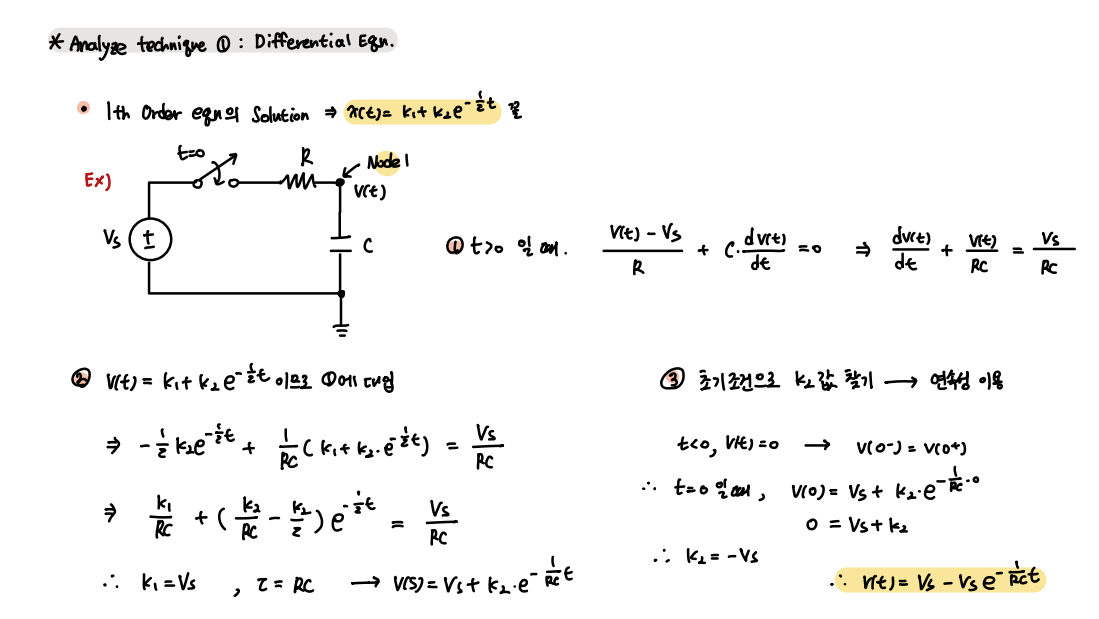 * Analyze technique ① : Differential Eqn.
• 1th Order eqn의 Solution ⇒ x(t) = k₁ + k₂e^{-\frac{1}{τ}t} 꼴
Ex)
t=0
R
Node 1
V(t)
Vs
C
① t>0 일 때. \frac{V(t) - Vs}{R} + C·\frac{dv(t)}{dt} = 0 ⇒ \frac{dv(t)}{dt} + \frac{V(t)}{RC} = \frac{Vs}{RC}
② V(t) = k₁ + k₂e^{-\frac{1}{τ}t} 이므로 ①에 대입
⇒ -\frac{1}{τ}k₂e^{-\frac{1}{τ}t} + \frac{1}{RC}(k₁ + k₂·e^{-\frac{1}{τ}t}) = \frac{Vs}{RC}
⇒ \frac{k₁}{RC} + (\frac{k₂}{RC} - \frac{k₂}{τ})e^{-\frac{1}{τ}t} = \frac{Vs}{RC}
∴ k₁ = Vs , τ = RC → V(S) = Vs + k₂·e^{-\frac{1}{RC}t}
③ 초기조건으로 k₂값 찾기 → 연속성 이용
t<0, V(t)=0 → V(0-) = V(0+)
∴ t=0 일 때, V(0) = Vs + k₂·e^{-\frac{1}{RC}·0}
0 = Vs + k₂
∴ k₂ = -Vs
∴ V(t) = Vs - Vs e^{-\frac{1}{RC}t}